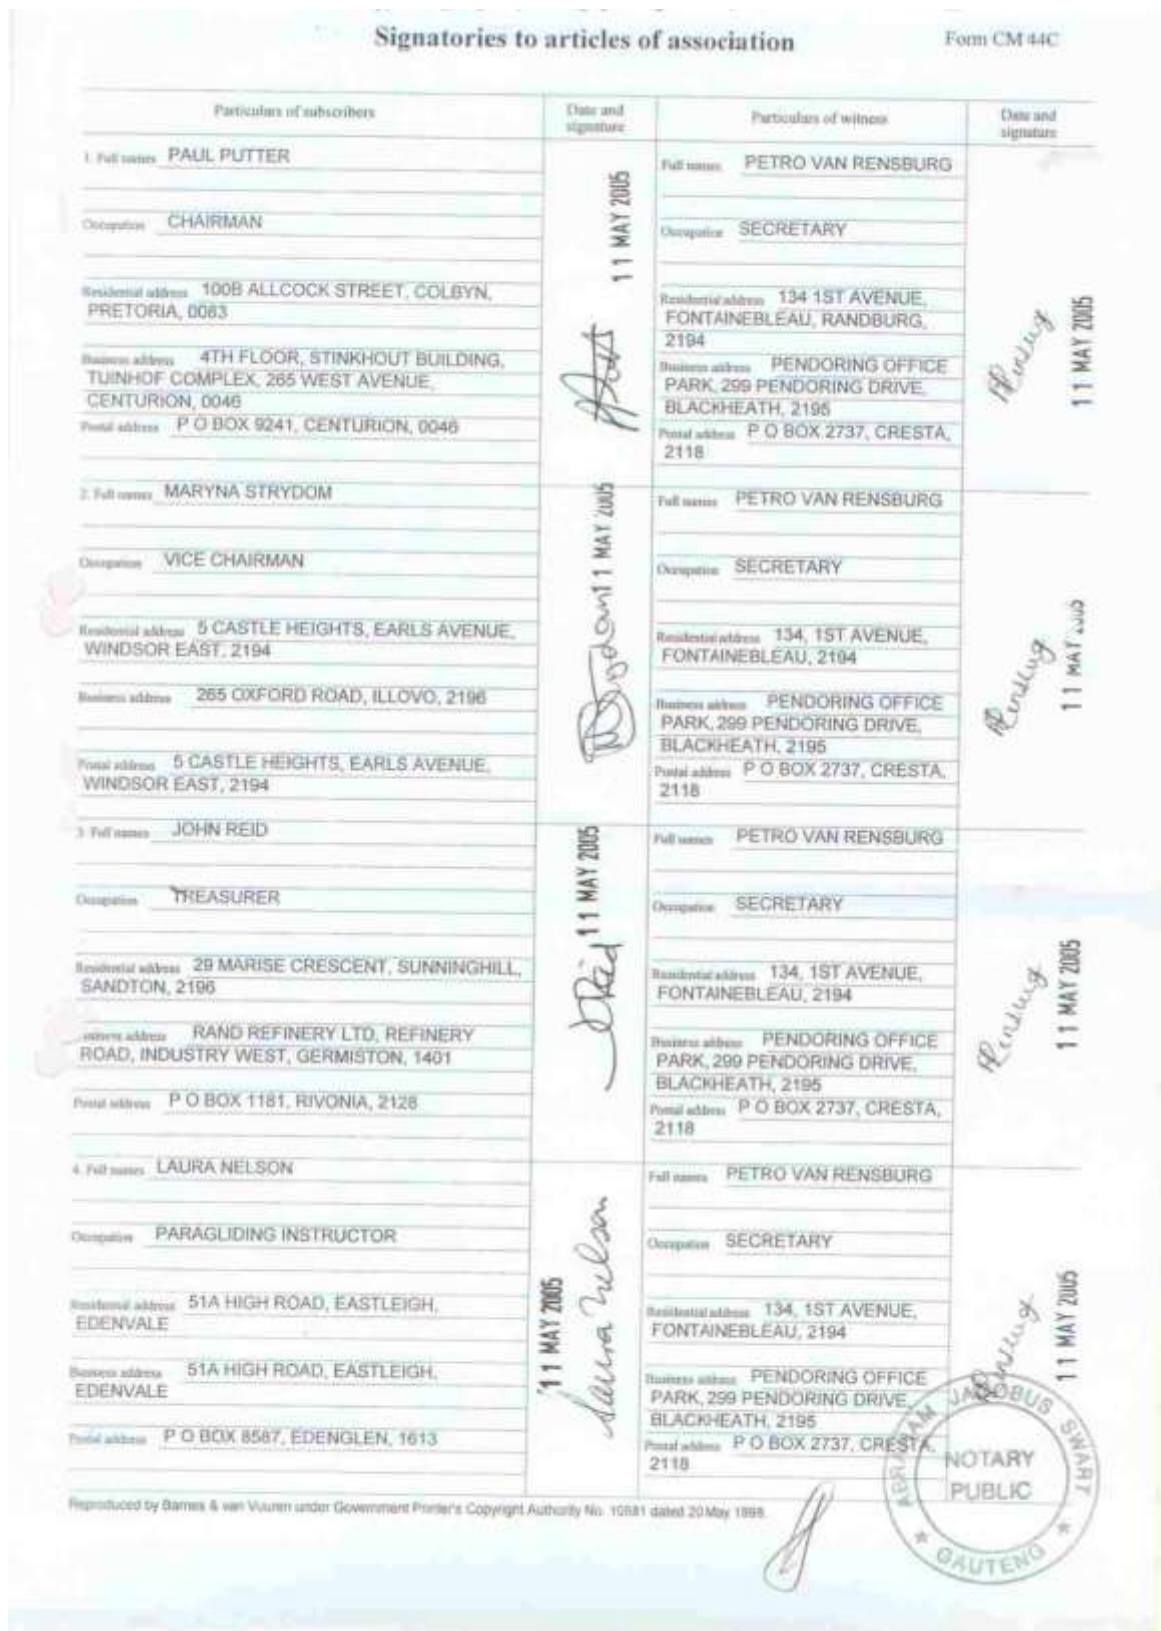 Signatories to articles of association
Form CM 44C
Particulars of subscribers
Date and
signature
Particulars of witness
Date and
signature
1. Full names PAUL PUTTER
Occupation CHAIRMAN
Residential address 100B ALLCOCK STREET, COLBYN,
PRETORIA, 0083
Business address 4TH FLOOR, STINKHOUT BUILDING,
TUINHOF COMPLEX, 265 WEST AVENUE,
CENTURION, 0046
Postal address P O BOX 9241, CENTURION, 0046
11 MAY 2005
Full names PETRO VAN RENSBURG
Occupation SECRETARY
Residential address 134 1ST AVENUE,
FONTAINEBLEAU, RANDBURG,
2194
Business address PENDORING OFFICE
PARK, 299 PENDORING DRIVE,
BLACKHEATH, 2195
Postal address P O BOX 2737, CRESTA,
2118
11 MAY 2005
2. Full names MARYNA STRYDOM
Occupation VICE CHAIRMAN
Residential address 5 CASTLE HEIGHTS, EARLS AVENUE,
WINDSOR EAST, 2194
Business address 265 OXFORD ROAD, ILLOVO, 2196
Postal address 5 CASTLE HEIGHTS, EARLS AVENUE,
WINDSOR EAST, 2194
11 MAY 2005
Full names PETRO VAN RENSBURG
Occupation SECRETARY
Residential address 134, 1ST AVENUE,
FONTAINEBLEAU, 2194
Business address PENDORING OFFICE
PARK, 299 PENDORING DRIVE,
BLACKHEATH, 2195
Postal address P O BOX 2737, CRESTA,
2118
11 MAY 2005
3. Full names JOHN REID
Occupation TREASURER
Residential address 29 MARISE CRESCENT, SUNNINGHILL,
SANDTON, 2196
Business address RAND REFINERY LTD, REFINERY
ROAD, INDUSTRY WEST, GERMISTON, 1401
Postal address P O BOX 1181, RIVONIA, 2128
11 MAY 2005
Full names PETRO VAN RENSBURG
Occupation SECRETARY
Residential address 134, 1ST AVENUE,
FONTAINEBLEAU, 2194
Business address PENDORING OFFICE
PARK, 299 PENDORING DRIVE,
BLACKHEATH, 2195
Postal address P O BOX 2737, CRESTA,
2118
11 MAY 2005
4. Full names LAURA NELSON
Occupation PARAGLIDING INSTRUCTOR
Residential address 51A HIGH ROAD, EASTLEIGH,
EDENVALE
Business address 51A HIGH ROAD, EASTLEIGH,
EDENVALE
Postal address P O BOX 8587, EDENGLEN, 1613
11 MAY 2005
Laura Nelson
Full names PETRO VAN RENSBURG
Occupation SECRETARY
Residential address 134, 1ST AVENUE,
FONTAINEBLEAU, 2194
Business address PENDORING OFFICE
PARK, 299 PENDORING DRIVE,
BLACKHEATH, 2195
Postal address P O BOX 2737, CRESTA,
2118
11 MAY 2005
ABRAHAM JACOBUS SWART
NOTARY
PUBLIC
GAUTENG
Reproduced by Barnes & van Vuuren under Government Printer's Copyright Authority No. 10581 dated 20 May 1998.